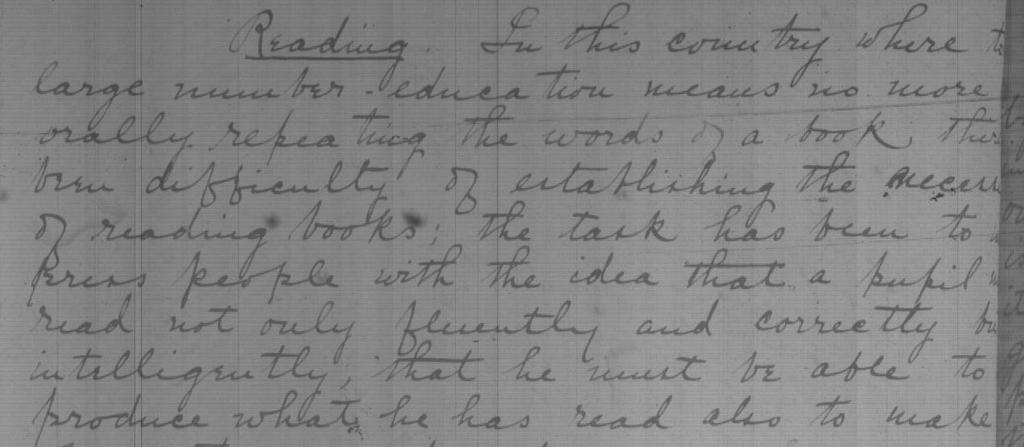 Reading. In this country where
large number - education means no more
orally repeating the words of a book, ther
been difficulty of establishing the necess
of reading books; the task has been to
press people with the idea that a pupil
read not only fluently and correctly bu
intelligently, that he must be able to
produce what he has read also to make